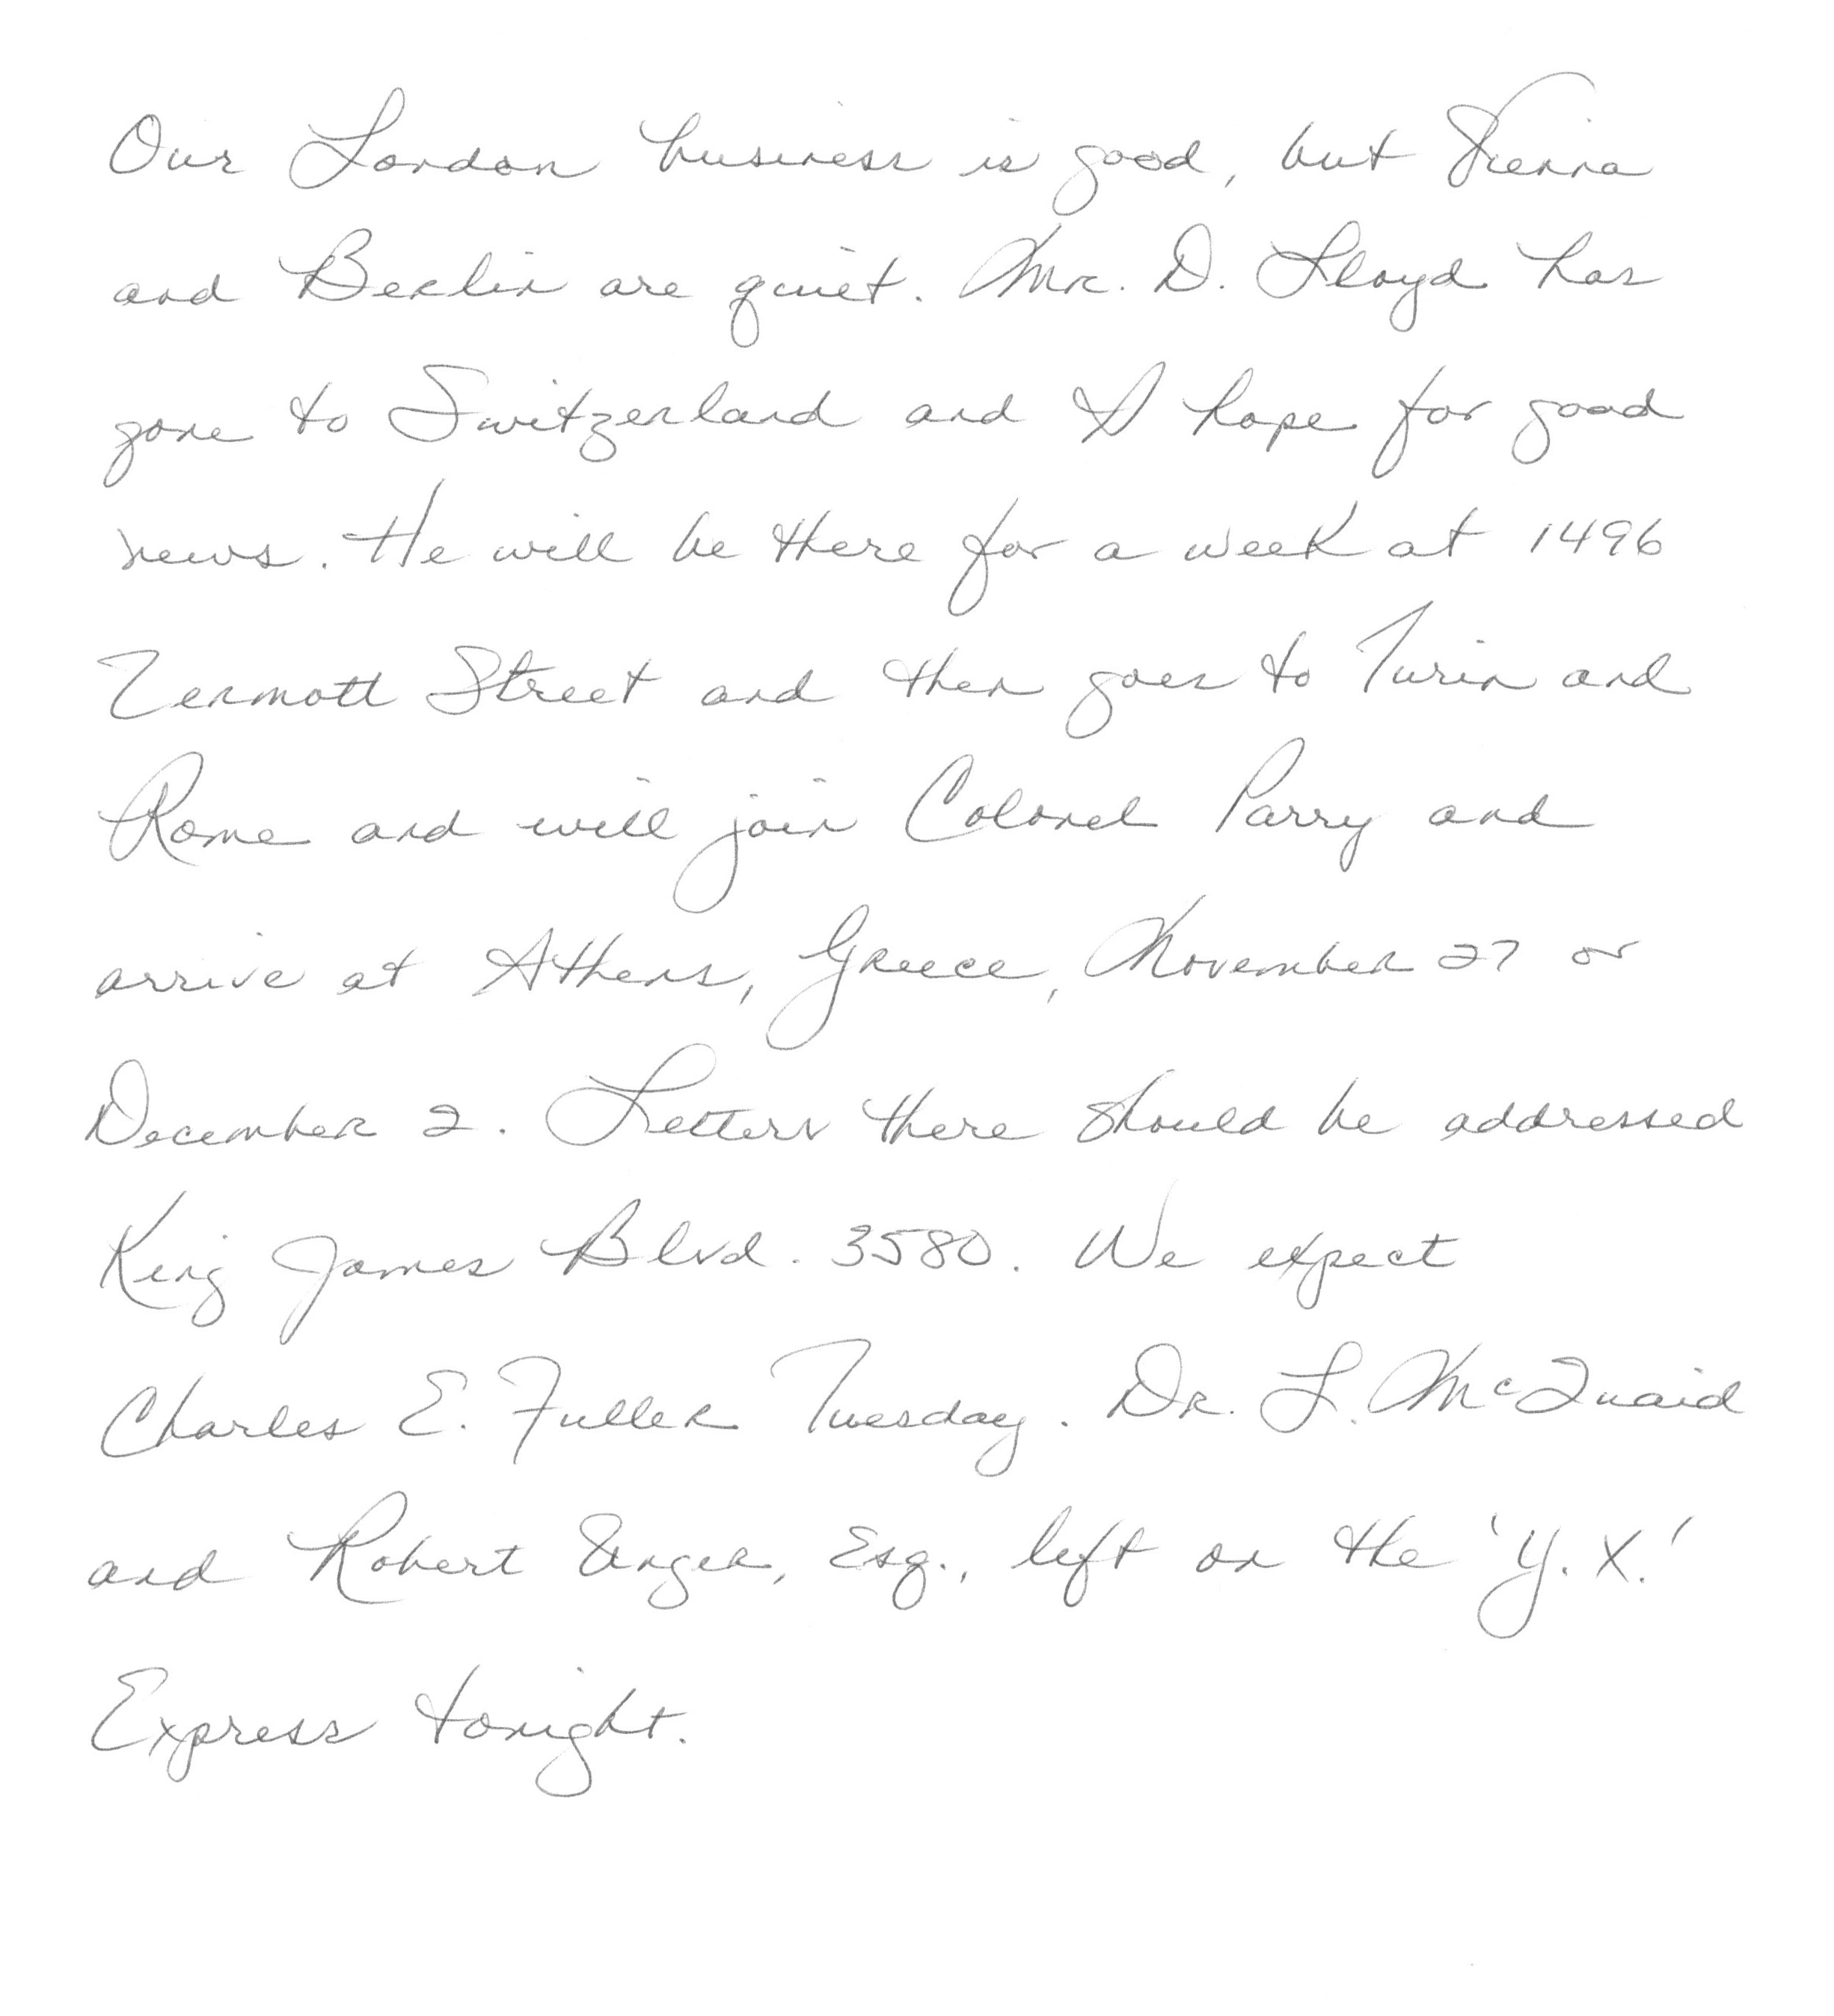 Our London business is good, but Vienna
and Berlin are quiet. Mr. D. Lloyd has
gone to Switzerland and I hope for good
news. He will be there for a week at 1496
Zermott Street and then goes to Turin and
Rome and will join Colonel Parry and
arrive at Athens, Greece, November 27 or
December 2. Letters there should be addressed
King James Blvd. 3580. We expect
Charles E. Fuller Tuesday. Dr. L. McQuaid
and Robert Unger, Esq., left on the 'Y.X.'
Express tonight.